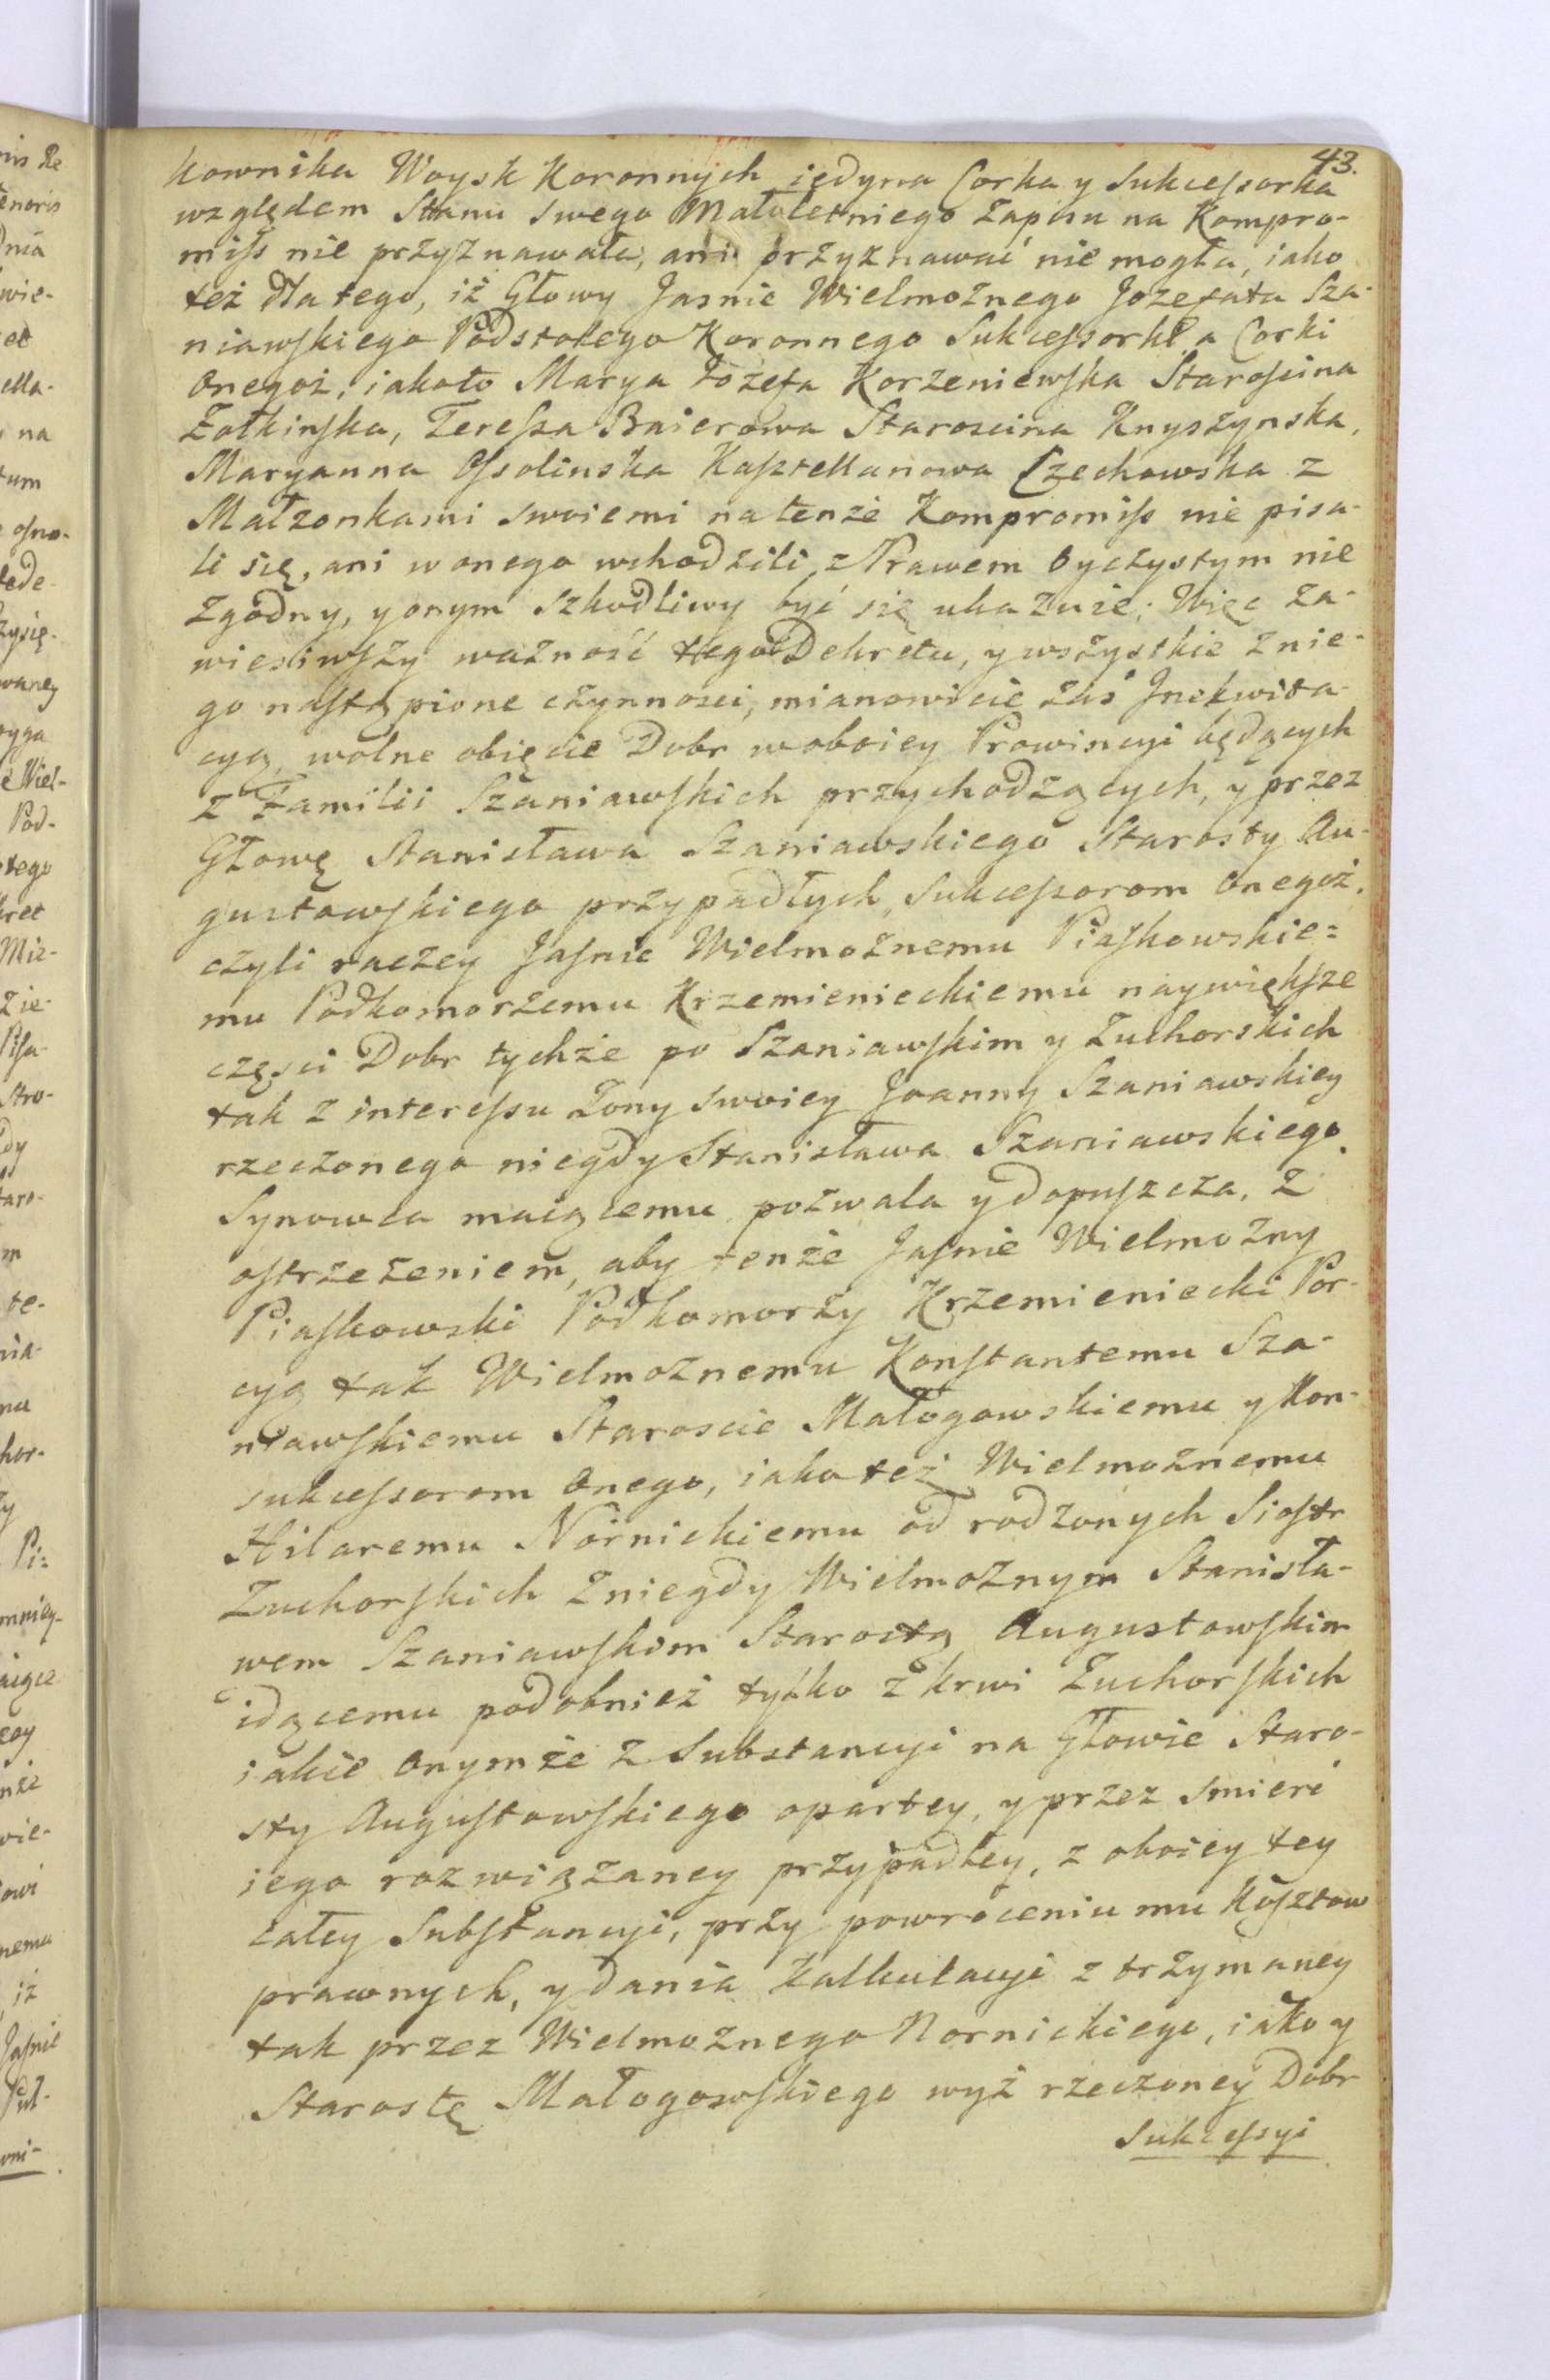 43.
kownika Woysk Koronnych iedyna Corka y Sukcessorka
względem Stanu swego Małoletniego Zapisu na Kompro-
miss nie przyznawała, ani przyznawać nie mogła, iako
też dla tego, iż Głowy Jasnie Wielmożnego Jozefata Sza-
niawskiego Podstolego Koronnego Sukcessorki a Corki
onegoż, iakoto Marya Jozefa Korzeniewska Staroscina
Zołkinska, Teressa Baierowa Staroscina Knyszynska,
Maryanna Ossolinska Kasztellanowa Czechowska z
Małzonkami swoiemi na tenże Kompromiss nie pisa-
li się, ani w onego wchodzili, z Prawem oyczystym nie
zgodny, y onym szkodliwy być się ukazuie; Więc za-
wiesiwszy ważność tego Dekretu, y wszystkie z nie-
go nastąpione czynnosci, mianowicie zaś Inekwita-
cyą, wolne obięcie Dobr w oboiey Prowincyi będących
z Familii Szaniawskich przychodzących, y przez
Głowę Stanisława Szaniawskiego Starosty Au-
gustowskiego przypadłych, Sukcessorom onegoż,
czyli raczey Jasnie Wielmożnemu Piaskowskie=
mu Podkomorzemu Krzemienieckiemu naywiększe
częsci Dobr tychże po Szaniawskim y Zuchorskich
tak z interessu Zony swoiey Joanny Szaniawskiey
rzeczonego niegdy Stanisława Szaniawskiego
Synowca maiącemu pozwala y dopuszcza, z
ostrzezeniem, aby tenże Jasnie Wielmożny
Piaskowski Podkomorzy Krzemieniecki Por-
cyą tak Wielmożnemu Konstantemu Sza-
niawskiemu Staroscie Małogowskiemu y Kon-
sukcessorom onego, iako też Wielmożnemu
Hilaremu Nornickiemu od rodzonych Siostr
Zuchorskich z niegdy Wielmożnym Stanisła-
wem Szaniawskim Starostą Augustowskim
idącemu podobnież tylko z krwi Zuchorskich
iakie onymże z Substancyi na Głowie Staro-
sty Augustowskiego opartey, y przez smierć
iego rozwiązaney przypadłey, z oboiey tey
całey Substancyi, przy powróceniu mu Kosztow
prawnych, y dania Kalkulacyi z trzymaney
tak przez Wielmożnego Nornickiego, iako y
Starostę Małogowskiego wyż rzeczoney Dobr
Sukcessyi